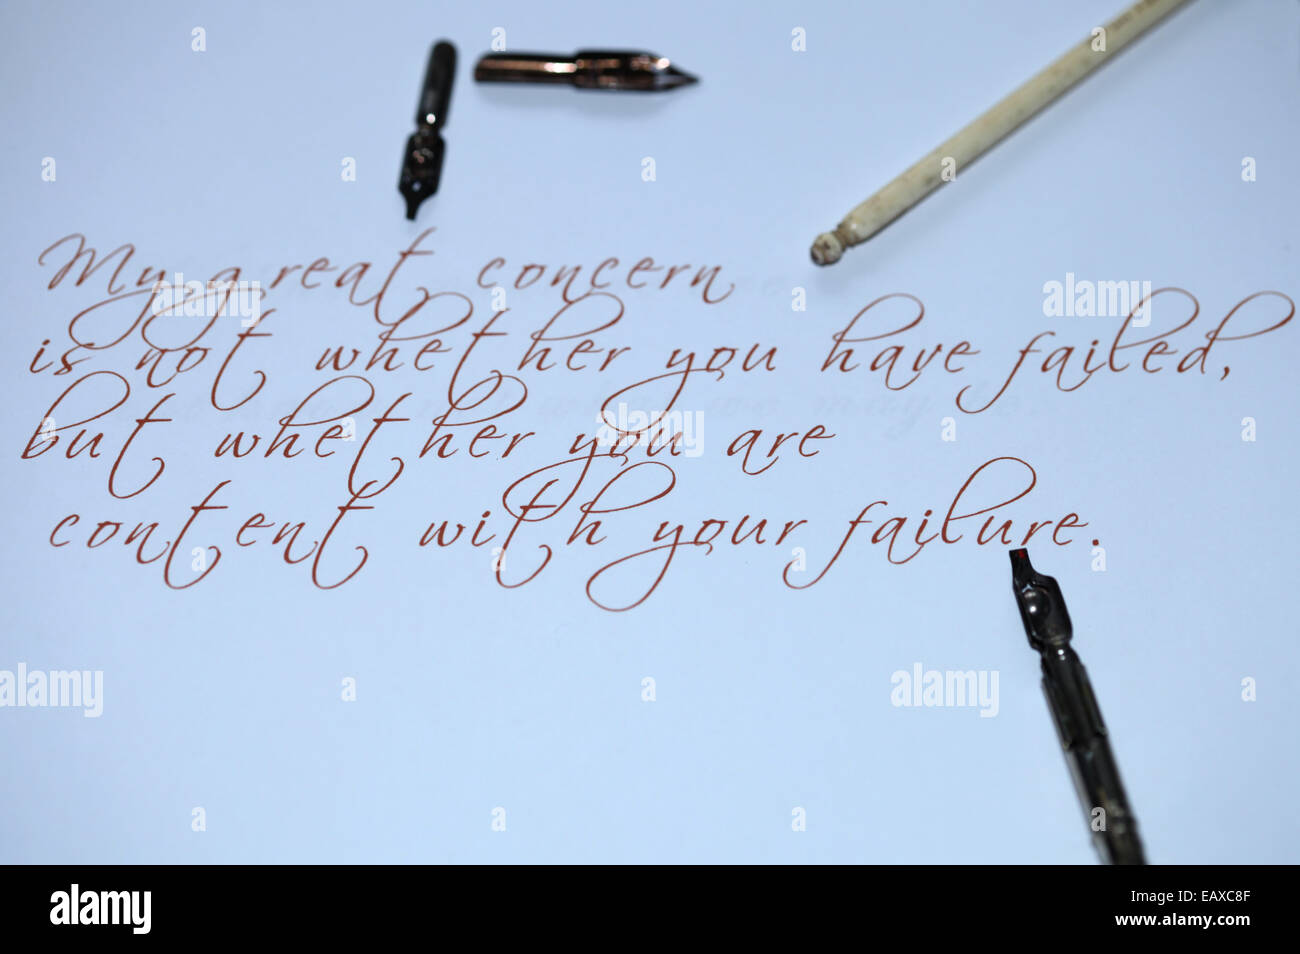 My great concern
is not whether you have failed,
but whether you are
content with your failure.
alamy
Image ID: EAXC8F
www.alamy.com